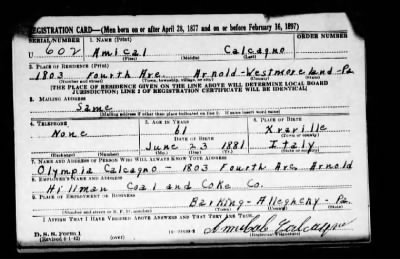 REGISTRATION CARD—(Men born on or after April 28, 1877 and on or before February 16, 1897)
SERIAL NUMBER 1. NAME (Print) ORDER NUMBER
U 602 Amical Calcagno
(First) (Middle) (Last)
2. PLACE OF RESIDENCE (Print)
1803 Fourth Ave. Arnold-Westmoreland-Pa
(Number and street) (Town, township, village, or city) (County) (State)
[THE PLACE OF RESIDENCE GIVEN ON THE LINE ABOVE WILL DETERMINE LOCAL BOARD
JURISDICTION; LINE 2 OF REGISTRATION CERTIFICATE WILL BE IDENTICAL]
3. MAILING ADDRESS
Same
[Mailing address if other than place indicated on line 2. If same insert word same]
4. TELEPHONE 5. AGE IN YEARS 6. PLACE OF BIRTH
None 61 Xraville
DATE OF BIRTH
June 23 1881 Italy
(Exchange) (Number) (Mo.) (Day) (Yr.) (State or country)
7. NAME AND ADDRESS OF PERSON WHO WILL ALWAYS KNOW YOUR ADDRESS
Olympia Calcagno - 1803 Fourth Ave Arnold
8. EMPLOYER'S NAME AND ADDRESS
Hillman Coal and Coke Co.
9. PLACE OF EMPLOYMENT OR BUSINESS
Barking-Allegheny-Pa.
(Number and street or R. F. D. number) (Town) (County) (State)
I AFFIRM THAT I HAVE VERIFIED ABOVE ANSWERS AND THAT THEY ARE TRUE.
D. S. S. Form 1
(Revised 4-1-42) (over)
Calcagno
(Registrant's signature)